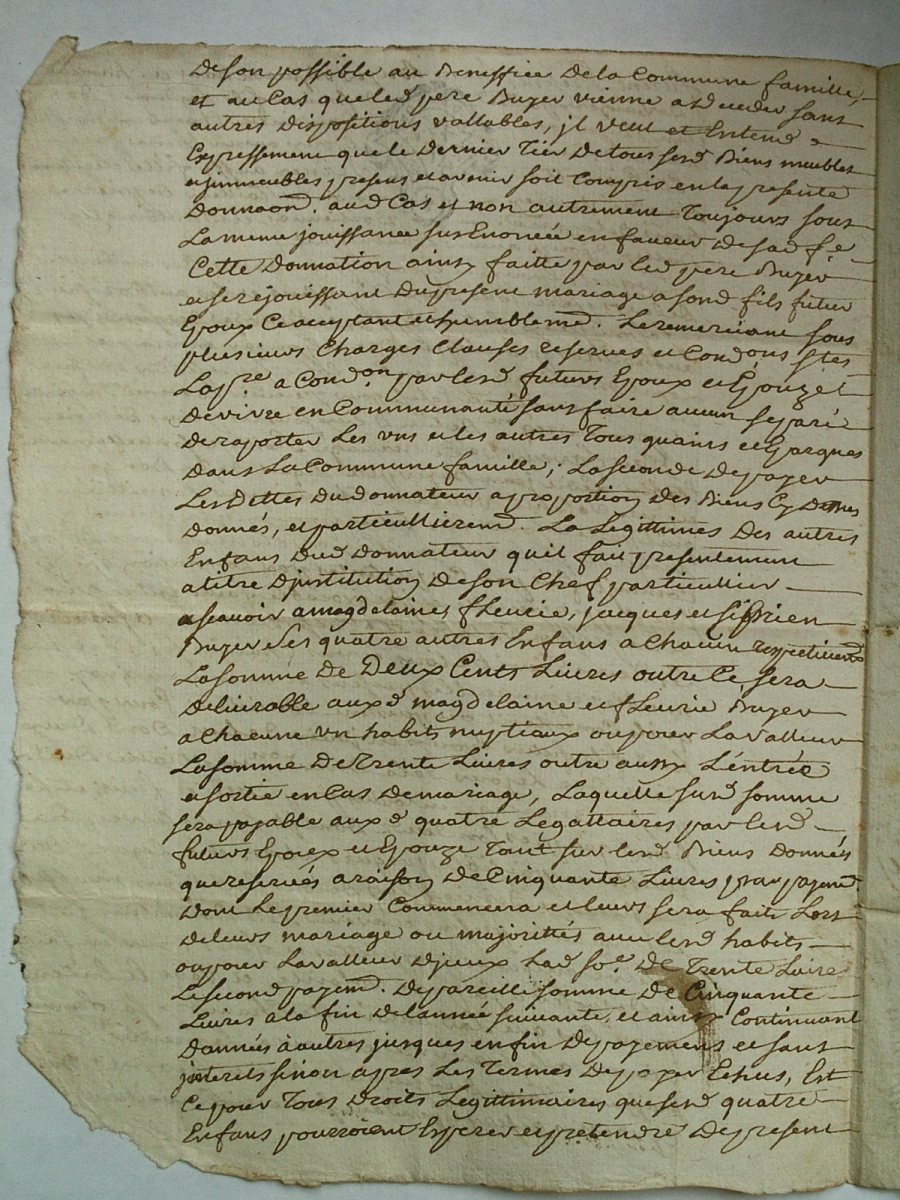 de son possible au Beneffice de la Commune famille,
et au Cas que led pere Buyer vienne a deceder sans
autres dispositions vallables, jl veut et Entend
Expressement que le dernier Tier de tous sesd Biens meubles
et jmmeubles presens et avenir soit Compris en la presente
donnaon. aud Cas et non autrement Toujours sous
La meme jouissance sus Enoncée en faveur de sad fe
Cette donnation ainsy faitte par led pere Buyer
et se rejouissant du present mariage a sond fils futur
Epoux Ce acceptant et humblemd. Le remerciant sous
plusieurs Charges Clauses reserves et Condons
La pre a Condon par lesd futurs Epoux et Epouze
de vivre en Communauté sans faire aucun separé
de raporter Les uns et les autres Tous quains et Eparques
dans La Commune famille, La seconde de payer
Les dettes du donnateur a proportion des Biens Cy
donnés, et particullieremd. La Legittimes des autres
Enfans dud donnateur quil fait presentement
a titre d'jnstitution de son Chef particullier
a scavoir a magdelaine, fleurie, jacques et
Buyer ses quatre autres Enfans a Chacun respectivemt
La somme de Deux Cents Livres outre Ce sera
delivrable auxd magdelaine et fleurie Buyer
a Chacune un habits nuptiaux ou pour La valleur
La somme de Trente Livres outre aussy L'entrée
et sortie en Cas de mariage, Laquelle susd somme
sera payable auxd quatre Legattaires par lesd
futurs Epoux et Epouze Tant sur lesd Biens donnés
que reservés a raison de Cinquante Livres pour payemd.
dont Le premier Commencera et leurs sera fait Lors
de leurs mariage ou majorittés avec lesd habits
ou pour La valleur d'jceux Lad soe de Trente Livre
Le second payemd. de pareille somme de Cinquante
Livres a la fin de l'année suivante, et ainsy Continuant
d'années à autres jusques en fin de payement et sans
jnterets sinon apres Les Termes de payer Echus, Est
Ce pour Tous droits Legittimaires que sesd quatre
Enfans pourroient Esperer et pretendre de present